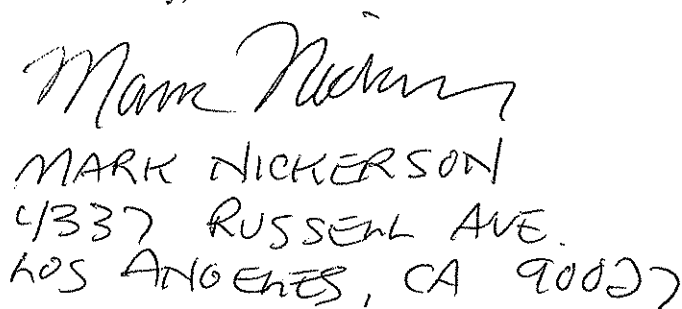 Mark Nickerson
MARK NICKERSON
4337 RUSSELL AVE.
LOS ANGELES, CA 90027